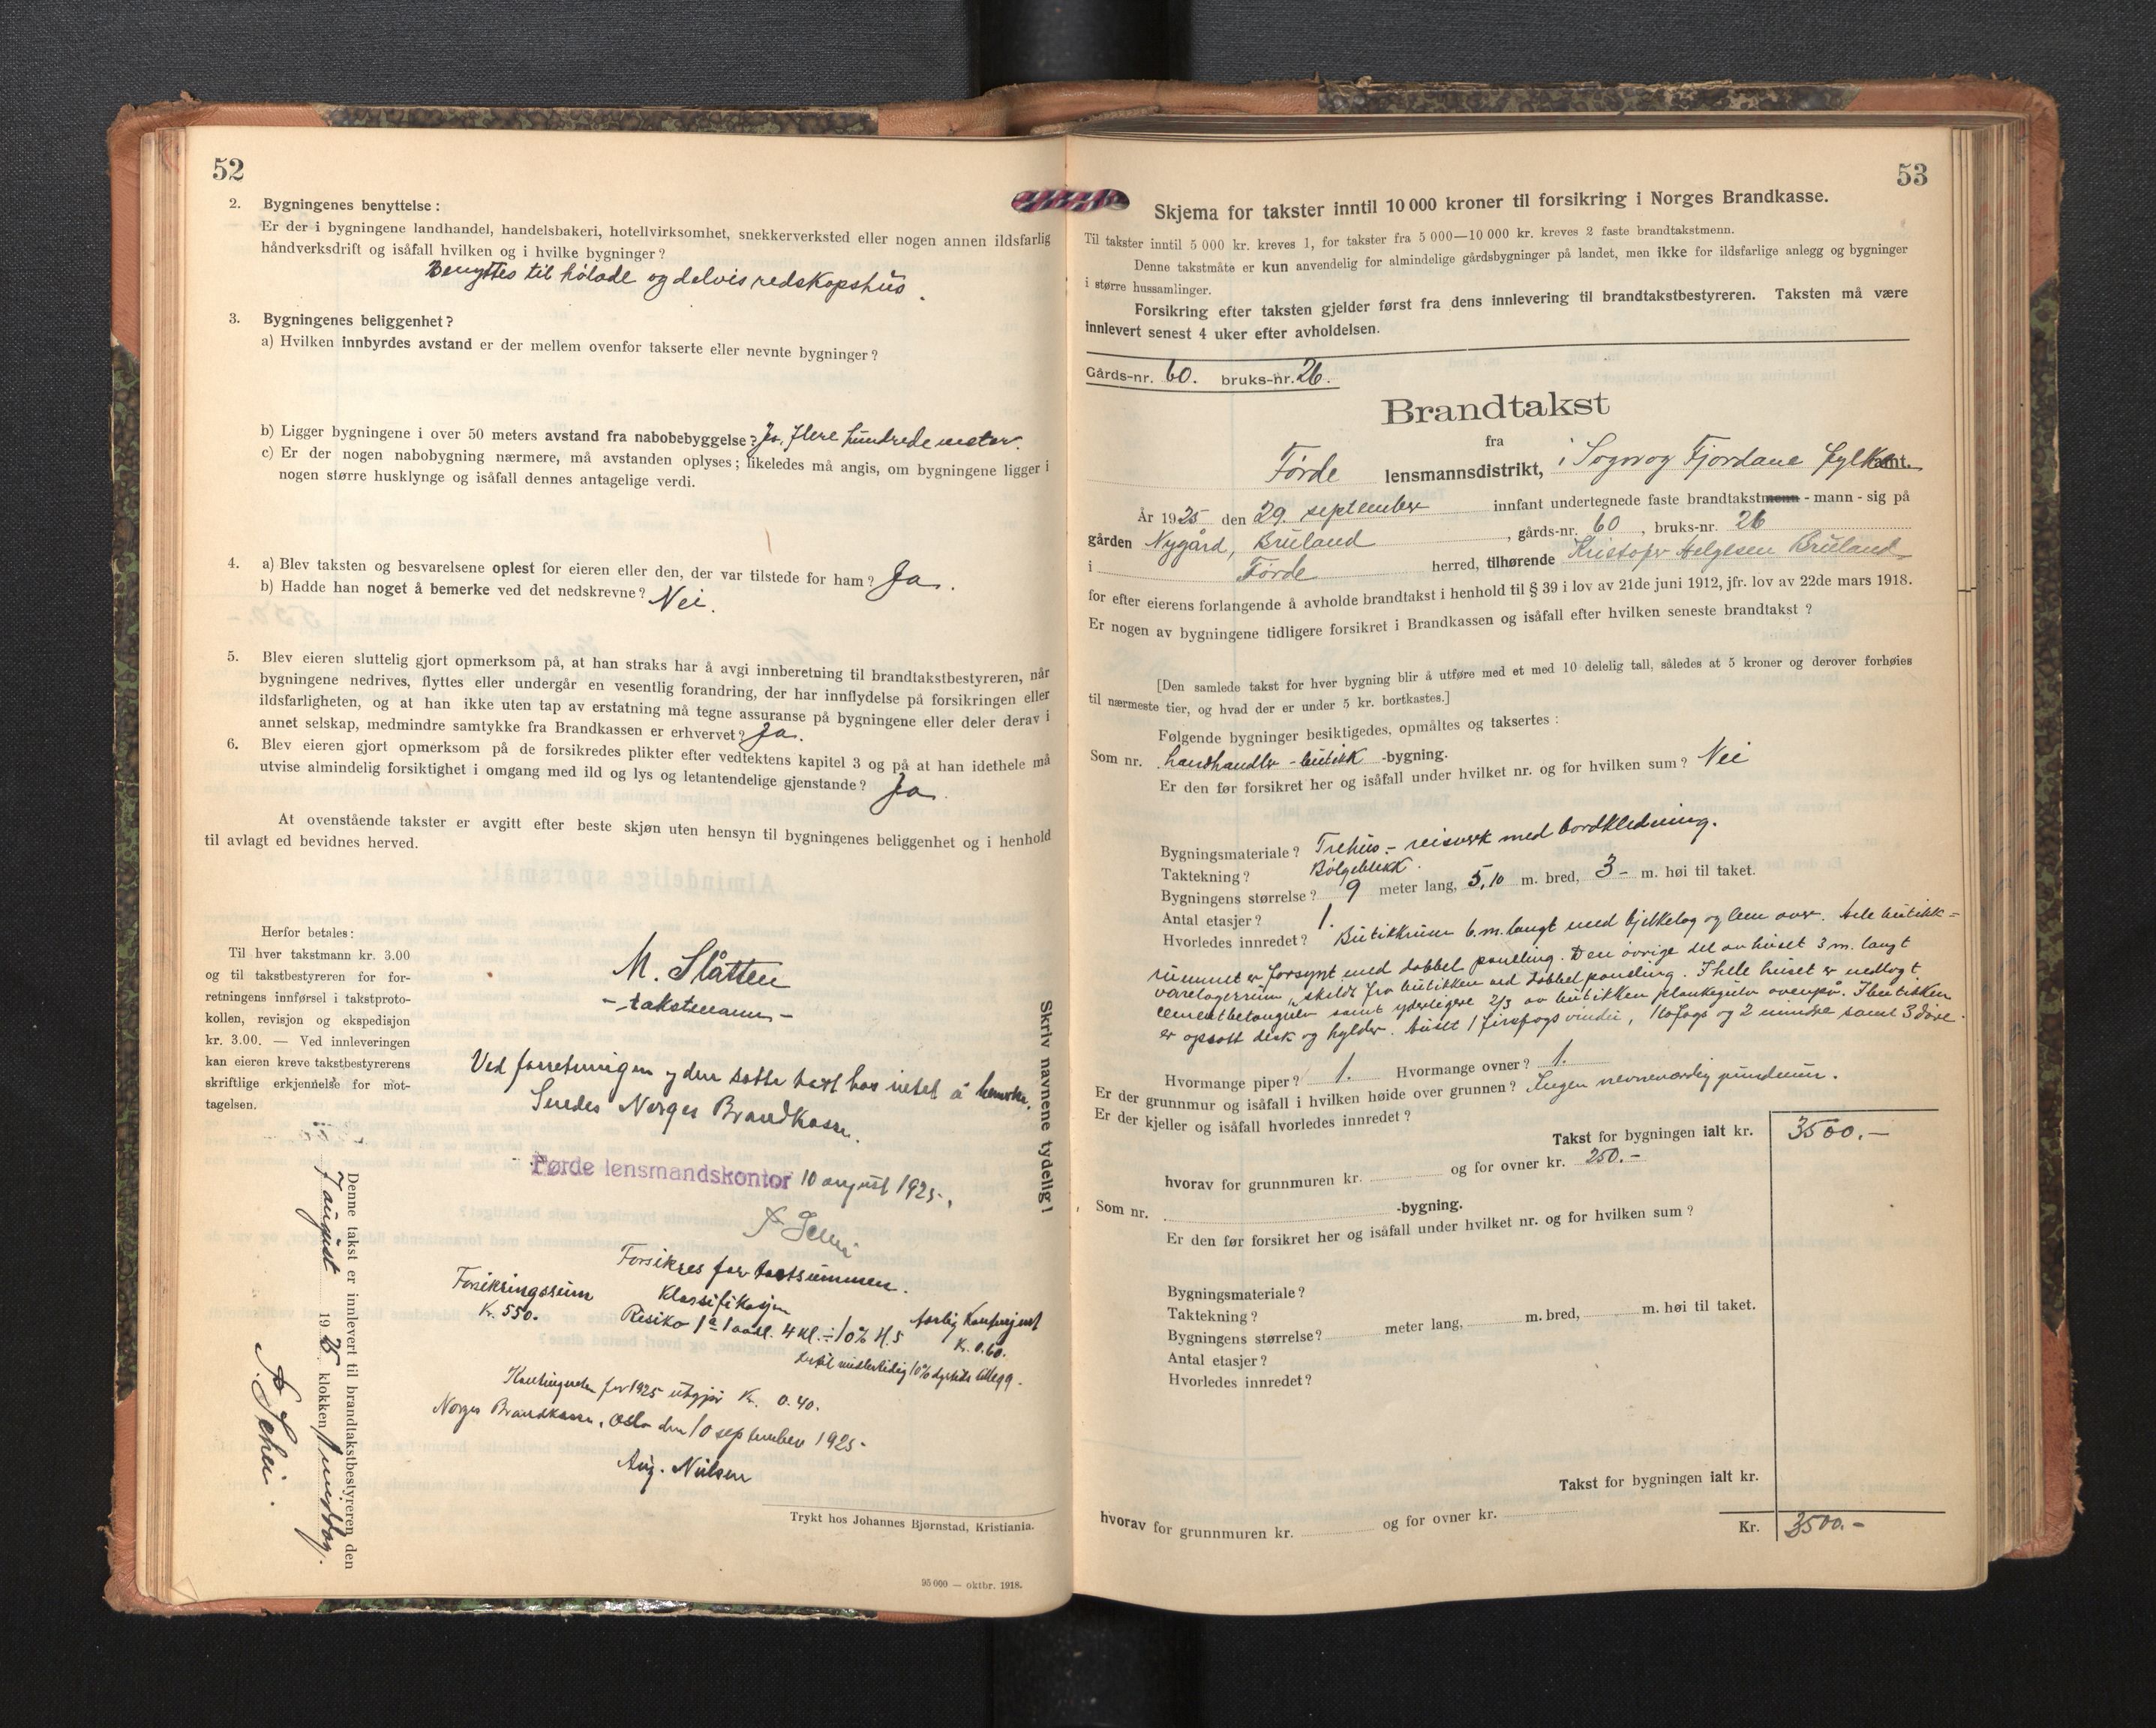 52
2. Bygningenes benyttelse:
Er der i bygningene landhandel, handelsbakeri, hotellvirksomhet, snekkerverksted eller nogen annen ildsfarlig
håndverksdrift og isåfall hvilken og i hvilke bygninger?
Benyttes til høilade og delvis redskapshus.
3. Bygningenes beliggenhet?
a) Hvilken innbyrdes avstand er der mellem ovenfor takserte eller nevnte bygninger?
b) Ligger bygningene i over 50 meters avstand fra nabobebyggelse? Ja, flere hundrede meter.
c) Er der nogen nabobygning nærmere, må avstanden oplyses; likeledes må angis, om bygningene ligger i
nogen større husklynge og isåfall dennes antagelige verdi.
4. a) Blev taksten og besvarelsene oplest for eieren eller den, der var tilstede for ham? Ja.
b) Hadde han noget å bemerke ved det nedskrevne? Nei.
5. Blev eieren sluttelig gjort opmerksom på, at han straks har å avgi innberetning til brandtakstbestyreren, når
bygningene nedrives, flyttes eller undergår en vesentlig forandring, der har innflydelse på forsikringen eller
ildsfarligheten, og at han ikke uten tap av erstatning må tegne assuranse på bygningene eller deler derav i
annet selskap, medmindre samtykke fra Brandkassen er erhvervet? Ja.
6. Blev eieren gjort opmerksom på de forsikredes plikter efter vedtektens kapitel 3 og på at han idethele må
utvise almindelig forsiktighet i omgang med ild og lys og letantendelige gjenstande? Ja.
At ovenstående takster er avgitt efter beste skjøn uten hensyn til bygningenes beliggenhet og i henhold
til avlagt ed bevidnes herved.
Herfor betales:
Til hver takstmann kr. 3.00
og til takstbestyreren for for-
retningens innførsel i takstproto-
kollen, revisjon og ekspedisjon
kr. 3.00. — Ved innleveringen
kan eieren kreve takstbestyrerens
skriftlige erkjennelse for mot-
tagelsen.
M. Slåtten
- takstmann -
Ved forretningen og den satte takst har intet å bemerke.
Sendes Norges Brandkasse.
Førde lensmandskontor 10 august 1925.
Forsikres for takstsummen.
Forsikringssum Klassifikasjon Aarlig Kontingent
Kr. 550. Risiko 1ª 1 avd. 4 kl. ÷ 10% H.S Kr. 0.60.
hertil midlertidig 10% dyrtids tillegg.
Kontingenten for 1925 utgjør Kr. 0.40.
Norges Brandkasse, Oslo den 10 september 1925.
Aug. Nielsen
Skriv navnene tydelig!
Denne takst er innlevert til brandtakstbestyreren den
7 august 1925 klokken 1 middag.
A. Schei.
Trykt hos Johannes Bjørnstad, Kristiania.
95 000 — oktbr. 1918.
53
Skjema for takster inntil 10 000 kroner til forsikring i Norges Brandkasse.
Til takster inntil 5 000 kr. kreves 1, for takster fra 5 000—10 000 kr. kreves 2 faste brandtakstmenn.
Denne takstmåte er kun anvendelig for almindelige gårdsbygninger på landet, men ikke for ildsfarlige anlegg og bygninger
i større hussamlinger.
Forsikring efter taksten gjelder først fra dens innlevering til brandtakstbestyreren. Taksten må være
innlevert senest 4 uker efter avholdelsen.
Gårds-nr. 60. bruks-nr. 26.
Brandtakst
fra
Førde lensmannsdistrikt, i Sogn og Fjordane fylke amt.
År 1925 den 29. september innfant undertegnede faste brandtakstmenn - mann - sig på
gården Nygård, Bruland, gårds-nr. 60, bruks-nr. 26
i Førde herred, tilhørende Kristofer Helgesen Bruland
for efter eierens forlangende å avholde brandtakst i henhold til § 39 i lov av 21de juni 1912, jfr. lov av 22de mars 1918.
Er nogen av bygningene tidligere forsikret i Brandkassen og isåfall efter hvilken seneste brandtakst?
[Den samlede takst for hver bygning blir å utføre med et med 10 delelig tall, således at 5 kroner og derover forhøies
til nærmeste tier, og hvad der er under 5 kr. bortkastes.]
Følgende bygninger besiktigedes, opmåltes og taksertes:
Som nr. Landhandler - butikk -bygning.
Er den før forsikret her og isåfall under hvilket nr. og for hvilken sum? Nei
Bygningsmateriale? Trehus - reisverk med bordkledning.
Taktekning? Bølgeblekk.
Bygningens størrelse? 9 meter lang, 5,10 m. bred, 3 - m. høi til taket.
Antal etasjer? 1.
Hvorledes innredet? Butikkrum 6 m. langt med bjelkelag og lem over. Hele butikk-
rummet er forsynt med dobbel paneling. Den øvrige del av huset 3 m. langt
varelagerrum, skilt fra butikken ved dobbel paneling. I hele huset er nedlagt
cementbetongulv samt yderligere 2/3 av butikken plankegulv ovenpå. I butikken
er opsatt disk og hylder. Huset 1 firefags vindu, 1 tofags og 2 mindre samt 3 døre.
Hvormange piper? 1. Hvormange ovner? 1.
Er der grunnmur og isåfall i hvilken høide over grunnen? Ingen nevneverdig grundmur.
Er der kjeller og isåfall hvorledes innredet?
Takst for bygningen ialt kr. 3500.-
hvorav for grunnmuren kr. og for ovner kr. 250.-
Som nr. -bygning.
Er den før forsikret her og isåfall under hvilket nr. og for hvilken sum?
Bygningsmateriale?
Taktekning?
Bygningens størrelse? meter lang, m. bred, m. høi til taket.
Antal etasjer?
Hvorledes innredet?
Takst for bygningen ialt kr.
hvorav for grunnmuren kr. og for ovner kr.
Kr. 3500.-